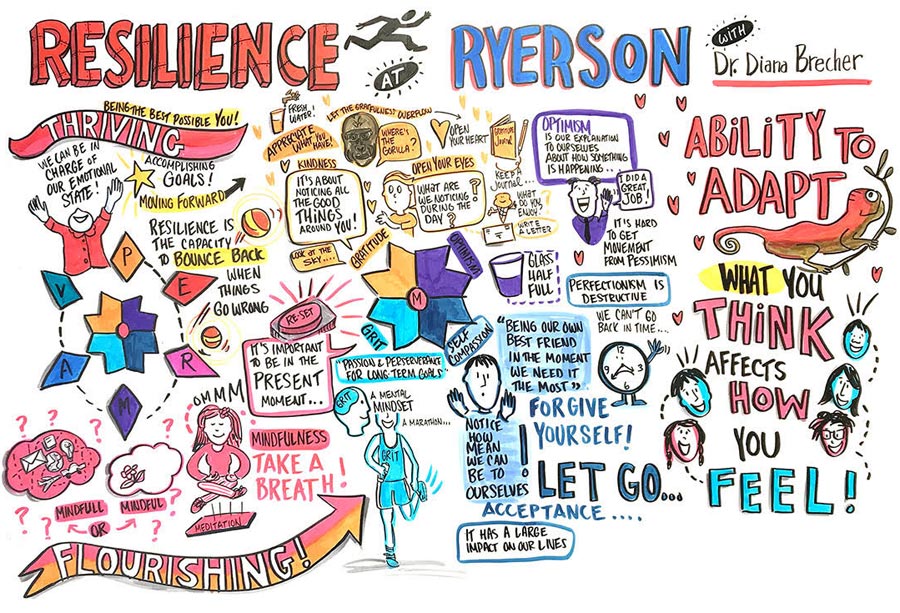 RESILIENCE
AT
RYERSON
WITH
Dr. Diana Brecher
BEING THE BEST POSSIBLE YOU!
THRIVING
WE CAN BE IN
CHARGE OF
OUR EMOTIONAL
STATE!
ACCOMPLISHING
GOALS!
MOVING FORWARD
RESILIENCE IS
THE CAPACITY
TO BOUNCE BACK
WHEN
THINGS
GO WRONG
P
E
R
M
A
V
FRESH
WATER!
LET THE GRATEFULNESS OVERFLOW
APPRECIATE
WHAT YOU
HAVE!
WHERE'S
THE
GORILLA?
OPEN
YOUR HEART
GRATITUDE
JOURNAL
KEEP A
JOURNAL...
KINDNESS
IT'S ABOUT
NOTICING ALL
THE GOOD
THINGS
AROUND YOU!
LOOK AT THE
SKY....
OPEN YOUR EYES
WHAT ARE
WE NOTICING
DURING THE
DAY?
WHAT
DO YOU
ENJOY?
WRITE
A LETTER
OPTIMISM
IS OUR EXPLANATION
TO OURSELVES
ABOUT HOW SOMETHING
IS HAPPENING..
I DID A
GREAT
JOB!
IT'S HARD
TO GET
MOVEMENT
FROM PESSIMISM
GLASS
HALF
FULL
PERFECTIONISM IS
DESTRUCTIVE
GRATITUDE
OPTIMISM
M
GRIT
SELF
COMPASSION
RE-SET
IT'S IMPORTANT
TO BE IN THE
PRESENT
MOMENT...
"PASSION & PERSEVERANCE
FOR LONG-TERM GOALS"
GRIT
A MENTAL
MINDSET
A MARATHON...
GRIT
"BEING OUR OWN
BEST FRIEND
IN THE MOMENT
WE NEED IT
THE MOST"
WE CAN'T GO
BACK IN TIME...
12
3
6
9
FORGIVE
YOURSELF!
NOTICE
HOW
MEAN
WE CAN
BE TO
OURSELVES
!
LET GO...
ACCEPTANCE....
IT HAS A LARGE
IMPACT ON OUR LIVES
OMMM
MINDFULNESS
TAKE A
BREATH!
MEDITATION
? ? ? ? ? ? ?
MINDFULL
OR
MINDFUL
FLOURISHING!
ABILITY TO
ADAPT
WHAT YOU
THINK
AFFECTS
HOW
YOU
FEEL!